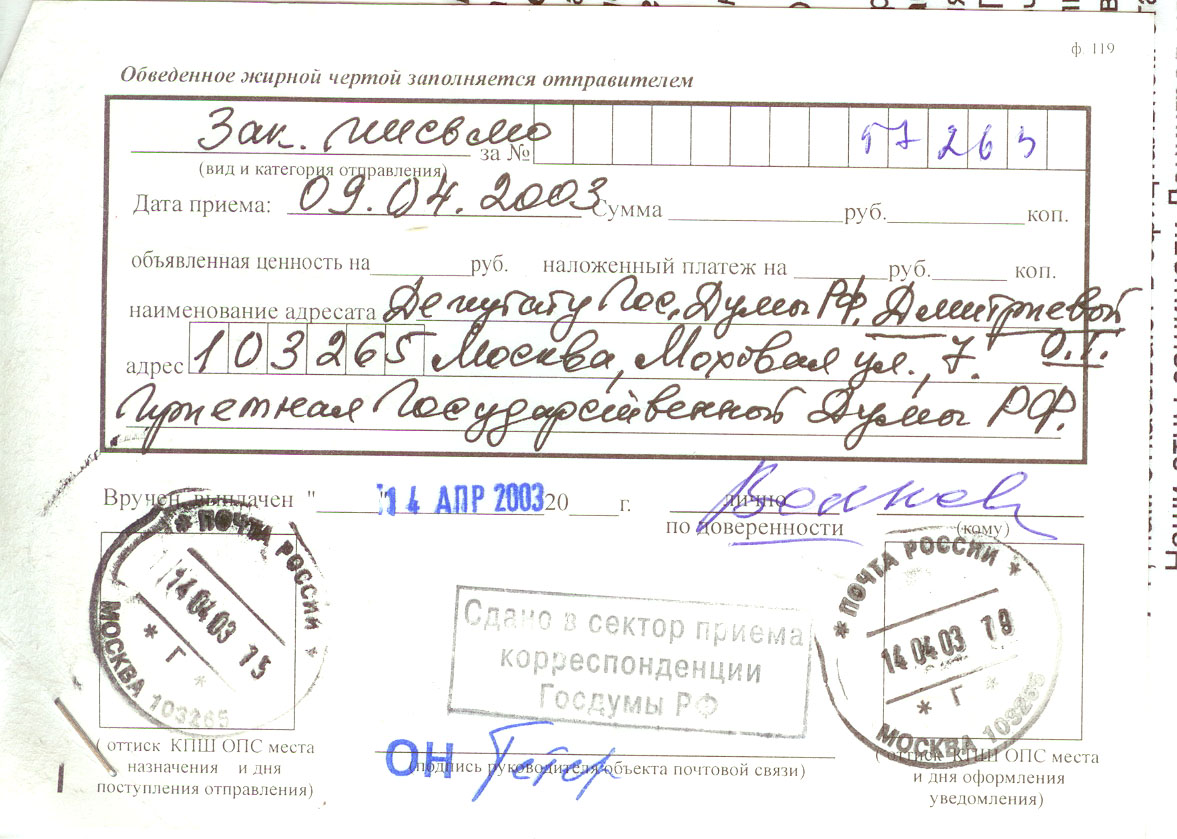 ф. 119
Обведенное жирной чертой заполняется отправителем
Зак. письмо за № 57265
(вид и категория отправления)
Дата приема: 09.04.2003 Сумма руб. коп.
объявленная ценность на руб. наложенный платеж на руб. коп.
наименование адресата Депутату Гос. Думы РФ, Дмитриевой
О.Г.
адрес 103265 Москва, Моховая ул., 7.
Приемная Государственной Думы РФ.
Вручен, выплачен " 14 АПР 2003 20 г. лично
по доверенности (кому)
ПОЧТА РОССИИ
14 04 03 15
Г
МОСКВА 103265
Сдано в сектор приема
корреспонденции
Госдумы РФ
ПОЧТА РОССИИ
14 04 03 19
Г
МОСКВА 103265
ОН
(подпись руководителя объекта почтовой связи)
( оттиск КПШ ОПС места
назначения и дня
поступления отправления)
( оттиск КПШ ОПС места
и дня оформления
уведомления)